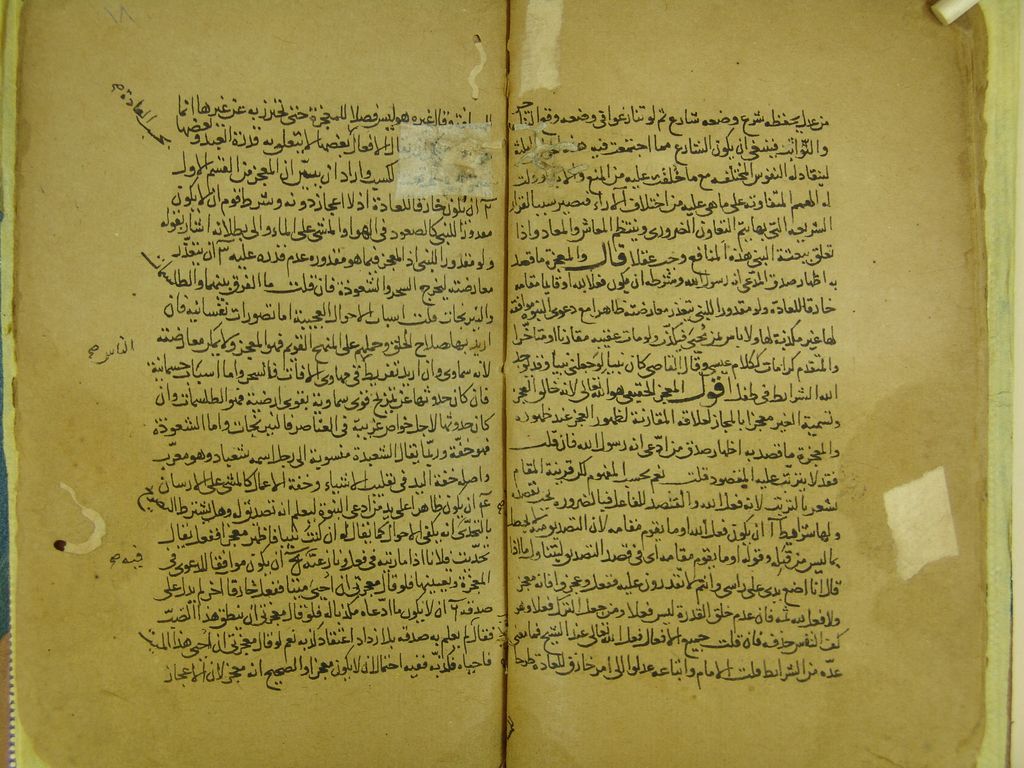 من عدل يحفظه شرع وضعه شارع ثم لو تنازعوا في وضعه وقع
فينبغي ان يكون الشارع مما اجتمعت فيه
لينقاد له النفوس المختلفة مع ما خلقت عليه من المنع
الهمم المتفاوتة على ما هي عليه من اختلاف الآراء فيصير سببا لقرار
الشريعة التي بها يتم التعاون الضروري وينتظم المعاش والمعاد واذا
تعلق ببعثة النبي هذه المنافع وجب عقلا قال والمعجزة ما قصد
به اظهار صدق المدعي انه رسول الله وشرطه ان يكون فعل الله او قائما مقامه
خارقا للعادة ولو مقدورا للنبي يتعذر معارضته ظاهرا مع دعوى النبوة موافقة
لها غير مكذبة لها ولو ممن يحيى وقيل ولو مات عقيبه مقارنة او متأخرا
والمتقدم كرامات ككلام عيسى وقال القاضي كان نبيا لوجعلني نبيا وقد
الله الشرائط في طفل اقول المعجز الحقيقي هو الله تعالى لانه خالق العجز
وتسمية الخبر معجزا بالمجاز لعلاقة المقارنة لظهور العجز عند ظهوره
والمعجزة ما قصد به اظهار صدق من ادعى انه رسول الله فان قلت
فقد لا يترتب عليه المقصود قلت نعم بحسب المفهوم لكن قرينة المقام
تشعر بالترتب لانه فعل الله والقصد للفاعل فبالضرورة
ولها شرائط آ ان يكون فعل الله او ما يقوم مقامه لان التصديق منه
بما ليس من قبله وقوله او ما يقوم مقامه اي في قصد التصديق ليتناول ما اذا
قال انا اضع يدي على راسي وانتم لا تقدرون عليه ففعل وعجزوا فانه معجز
ولا فعل لله ثمه فان عدم خلق القدرة ليس فعلا ومن جعل الترك فعلا وهو
كف النفس حذفه فان قلت جميع الافعال فعل الله تعالى عند الشيخ فما معنى
عده من الشرائط قلت الامام واتباعه عدلوا الى امر خارق للعادة
وقال غيره هو ليس فصلا للمعجزة حتى يحترز به عن غيرها انما
الافعال بعضها لا يتعلق به قدرة العبد وبعضها
كسب واراد ان يبين ان المعجز من القسم الاول
ب ان يكون خارقا للعادة اذ لا اعجاز دونه وشرط قوم ان لا يكون
مقدورا للنبي كالصعود في الهواء والمشي على الماء والى بطلانه اشار بقوله
ولو مقدورا للنبي اذ المعجز فيما هو مقدوره عدم قدرة عليه ج ان يتعذر
معارضته ليخرج السحر والشعوذة فان قلت ما الفرق بينهما والطلسمات
والنيرنجات قلت اسباب الاحوال العجيبة اما تصورات نفسانية فان
اريد بها صلاح الخلق وحملهم على المنهج القويم فهو المعجز ولا يمكن معارضته
لانه سماوي وان اريد تفريط في مهاوي الآفات فالسحر واما اسباب جسمانية
فان كان حدوثها عن تمزيج قوى سماوية بقوى ارضية فهو الطلسمات وان
كان حدوثها لاجل خواص غريبة في العناصر فالنيرنجات واما الشعوذة
فهو خفة وربما يقال الشعبذة منسوبة الى رجل اسمه شعباد وهو معرب
واصله خفة اليد في تقليب الاشياء وخفة الاعمال كالمشي على الارسان
د ان يكون ظاهرا على يد من ادعى النبوة ليعلم انه تصديق له وهل يشترط
بالتحدي انه يكفي الاحوال كما يقال له ان كنت نبيا فاظهر معجزا ففعل يقال
تحديت فلانا اذا باريته في فعل ونازعته ه ان يكون موافقا للدعوى في
المعجزة وتعيينها فلو قال معجزتي ان احيي ميتا ففعل خارقا آخر لم يدل على
صدقه و ان لا يكون ما ادعاه مكذبا له فلو قال معجزتي ان ينطق هذا الضب
فقال لم يعلم به صدقه بل ازداد اعتقاد كذبه نعم لو قال معجزتي ان احيي هذا الميت
فاحياه فكذبه ففيه احتمال ان لا يكون معجزا والصحيح انه معجز لان الاعجاز
بحسب العادة صح
الناس صح
فيه صح